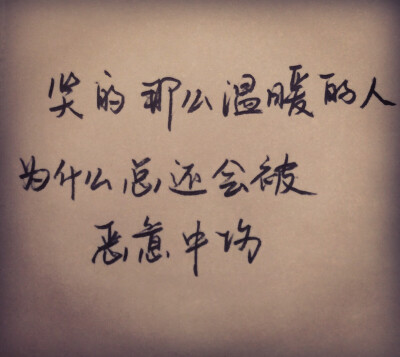 笑的那么温暖的人
为什么总还会被
恶意中伤